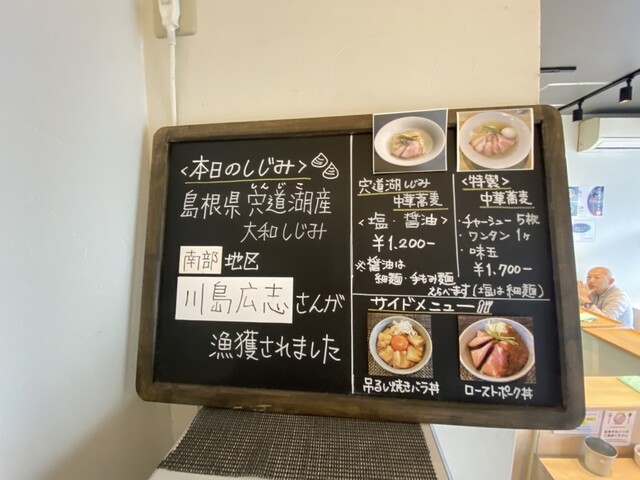 <本日のしじみ>
しんじこ
島根県 宍道湖産
大和しじみ
南部 地区
川島広志 さんが
漁獲されました
宍道湖しじみ
中華蕎麦
<塩・醤油>
¥1.200-
※醤油は
細麺・手もみ麺
えらべます(塩は細麺)
<特製>
中華蕎麦
・チャーシュー 5枚
・ワンタン 1ヶ
・味玉
¥1.700-
サイドメニュー
吊るし焼きバラ丼
ローストポーク丼